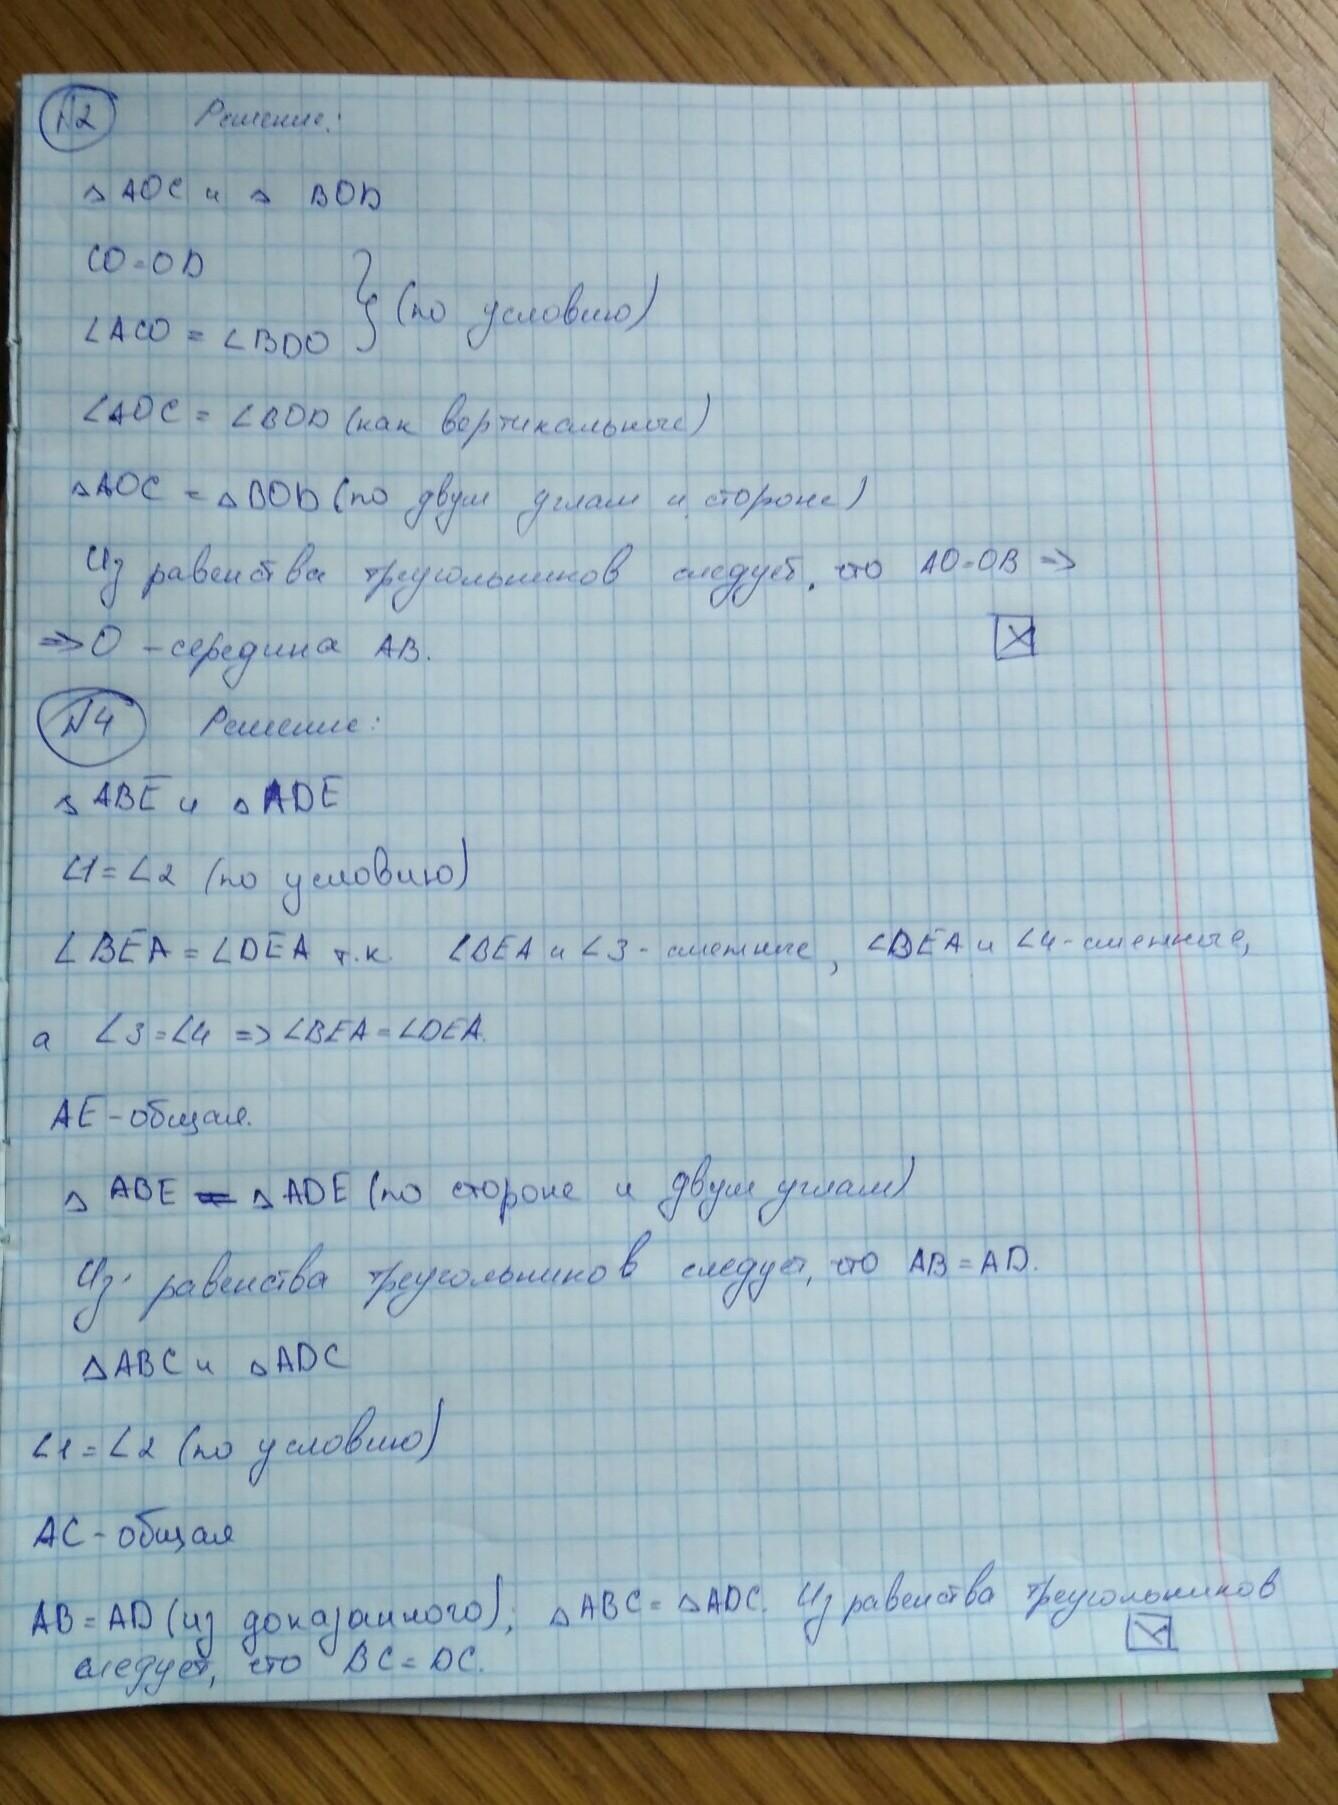 №2 Решение:
△AOC и △ BOD
CO=OD
∠ACO = ∠BDO } (по условию)
∠AOC = ∠BOD (как вертикальные)
△AOC = △BOD (по двум углам и стороне)
Из равенства треугольников следует, что AO=OB =>
=> O - середина AB.
№4 Решение:
△ABE и △ADE
∠1=∠2 (по условию)
∠BEA = ∠DEA т.к. ∠BEA и ∠3 - смежные, ∠BEA и ∠4 - смежные,
а ∠3=∠4 => ∠BEA=∠DEA.
AE - общая.
△ ABE = △ADE (по стороне и двум углам)
Из равенства треугольников следует, что AB=AD.
△ABC и △ADC
∠1=∠2 (по условию)
AC - общая
AB=AD (из доказанного); △ABC=△ADC. Из равенства треугольников
следует, что BC=DC.